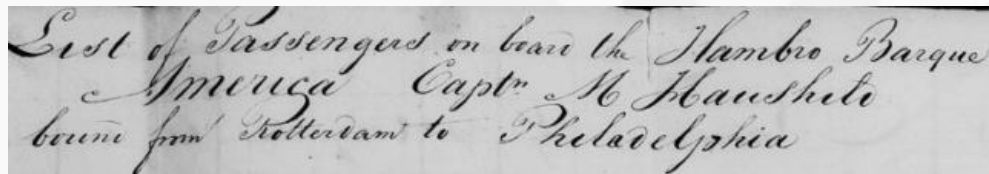 List of Passengers on board the Hambro Barque
America Captn M Haushild
bound from Rotterdam to Philadelphia